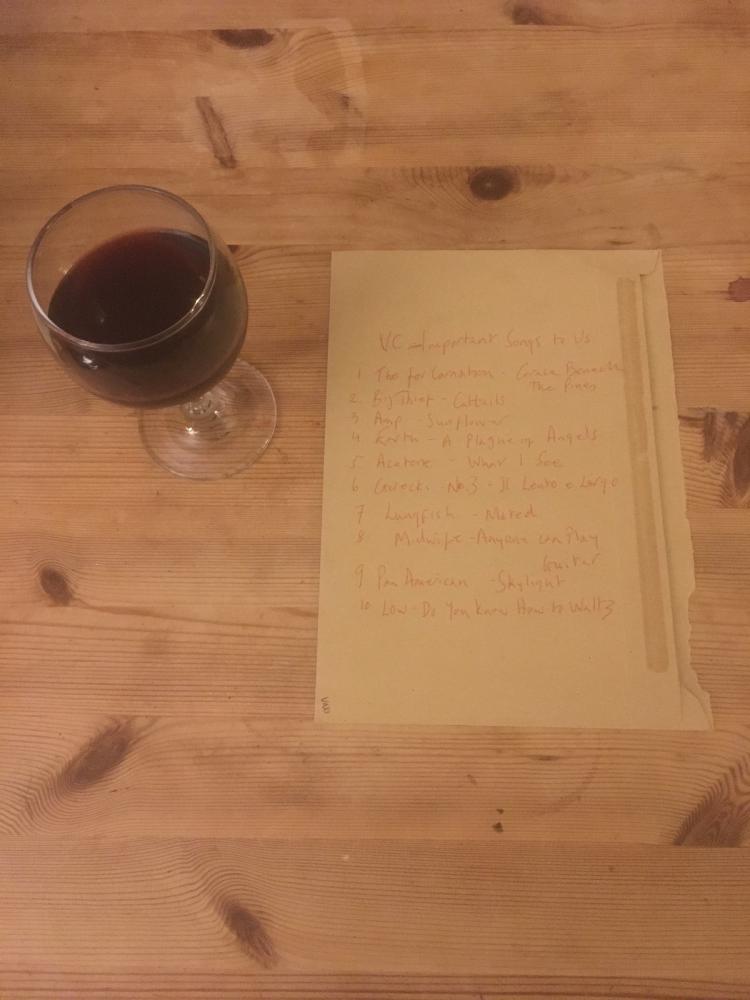 VC - Important Songs to Us
1 The for Carnation - Grace Beneath
The Pines
2. Big Thief - Cattails
3 Amp - Sunflower
4 Earth - A Plague of Angels
5 Acetone - What I See
6 Gorecki - No.3 - II Lento e Largo
7 Lungfish - Nated
8 Midwife - Anyone can Play
Guitar
9 Pan American - Skylight
10 Low - Do You Know How to Waltz